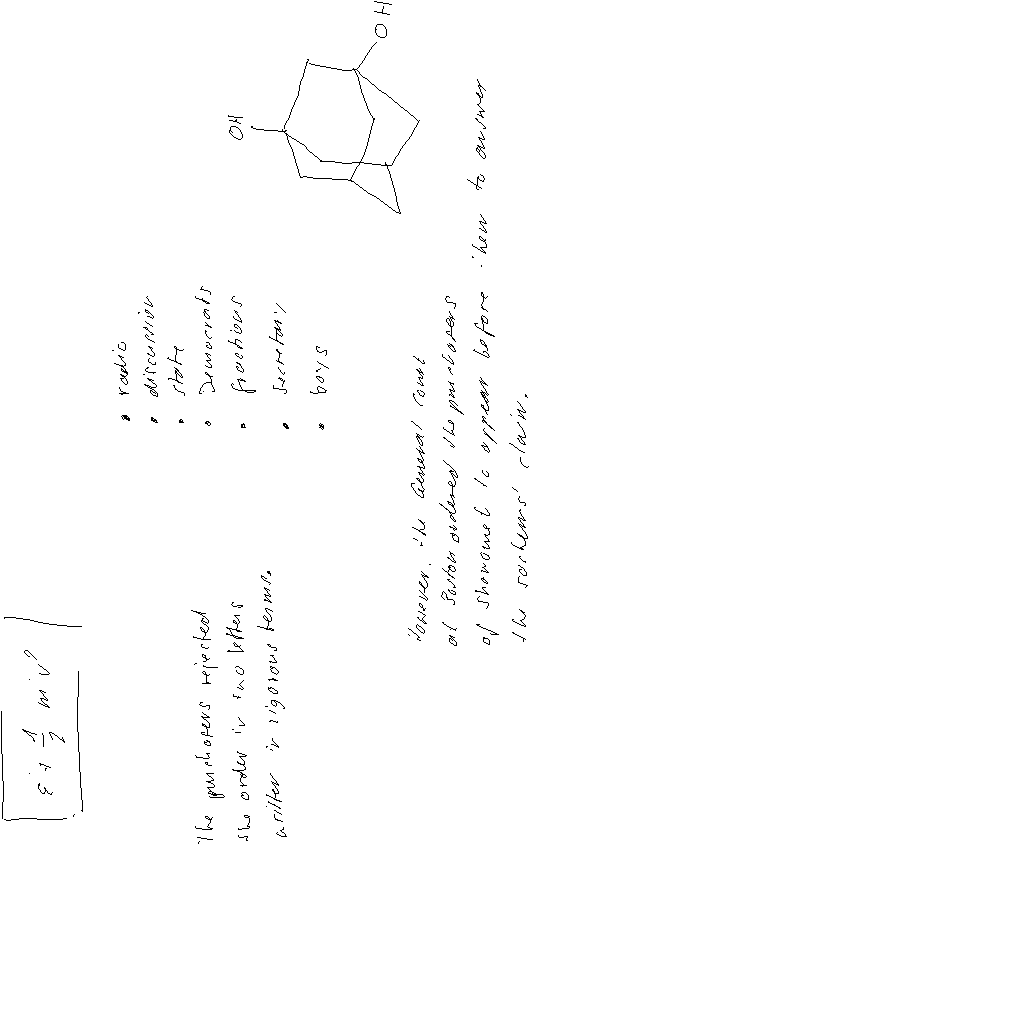 ε i + 1/2 m v²
The purchasers rejected
the order in two letters
written in rigorous terms.
• radio
• discussion
• state
• Democrats
• fractions
• Secretary
• boys
OH
OH
However, the General Court
at Boston ordered the purchasers
of Showamet to appear before them to answer
the sachems' claim.